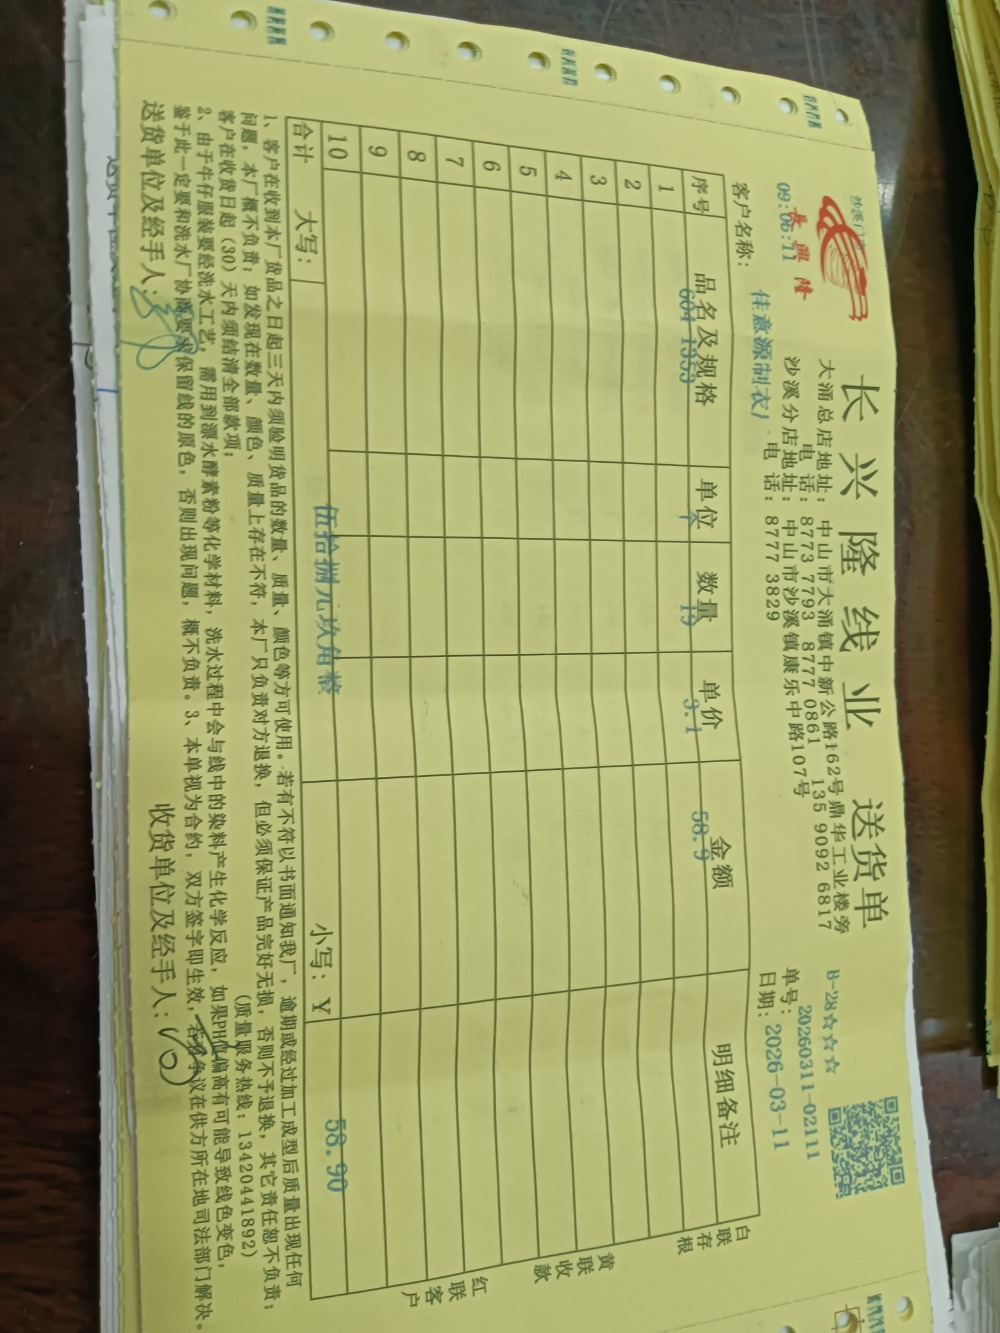 长兴隆线业 送货单
長興隆
09:06:11
大涌总店地址：中山市大涌镇中新公路162号鼎华工业楼旁
电 话：8773 7793 8777 0861 135 9092 6817
沙溪分店地址：中山市沙溪镇康乐中路107号
电 话：8777 3829
B-28☆☆☆
单号：20260311-02111
日期：2026-03-11
客户名称：佳意源制衣）
序号 品名及规格 单位 数量 单价 金额 明细备注
1 604 1353 个 19 3.1 58.9
2
3
4
5
6
7
8
9
10
合计 大写：伍拾捌元玖角整 小写：￥58.90
白联存根
黄联收款
红联客户
1、客户在收到本厂货品之日起三天内须验明货品的数量、质量、颜色等方可使用。若有不符以书面通知我厂，逾期或经过加工成型后质量出现任何
问题，本厂概不负责；如发现在数量、颜色、质量上存在不符，本厂只负责对方退换，但必须保证产品完好无损，否则不予退换，其它责任恕不负责；
客户在收货日起（30）天内须结清全部款项； （质量服务热线：13420441892）
2、由于牛仔服装要经洗水工艺，需用到漂水酵素粉等化学材料，洗水过程中会与线中的染料产生化学反应，如果PH值偏高有可能导致线色变色，
鉴于此一定要和洗水厂协商要求保留线的原色，否则出现问题，概不负责。3、本单视为合约，双方签字即生效，若有争议在供方所在地司法部门解决。
送货单位及经手人： 收货单位及经手人：